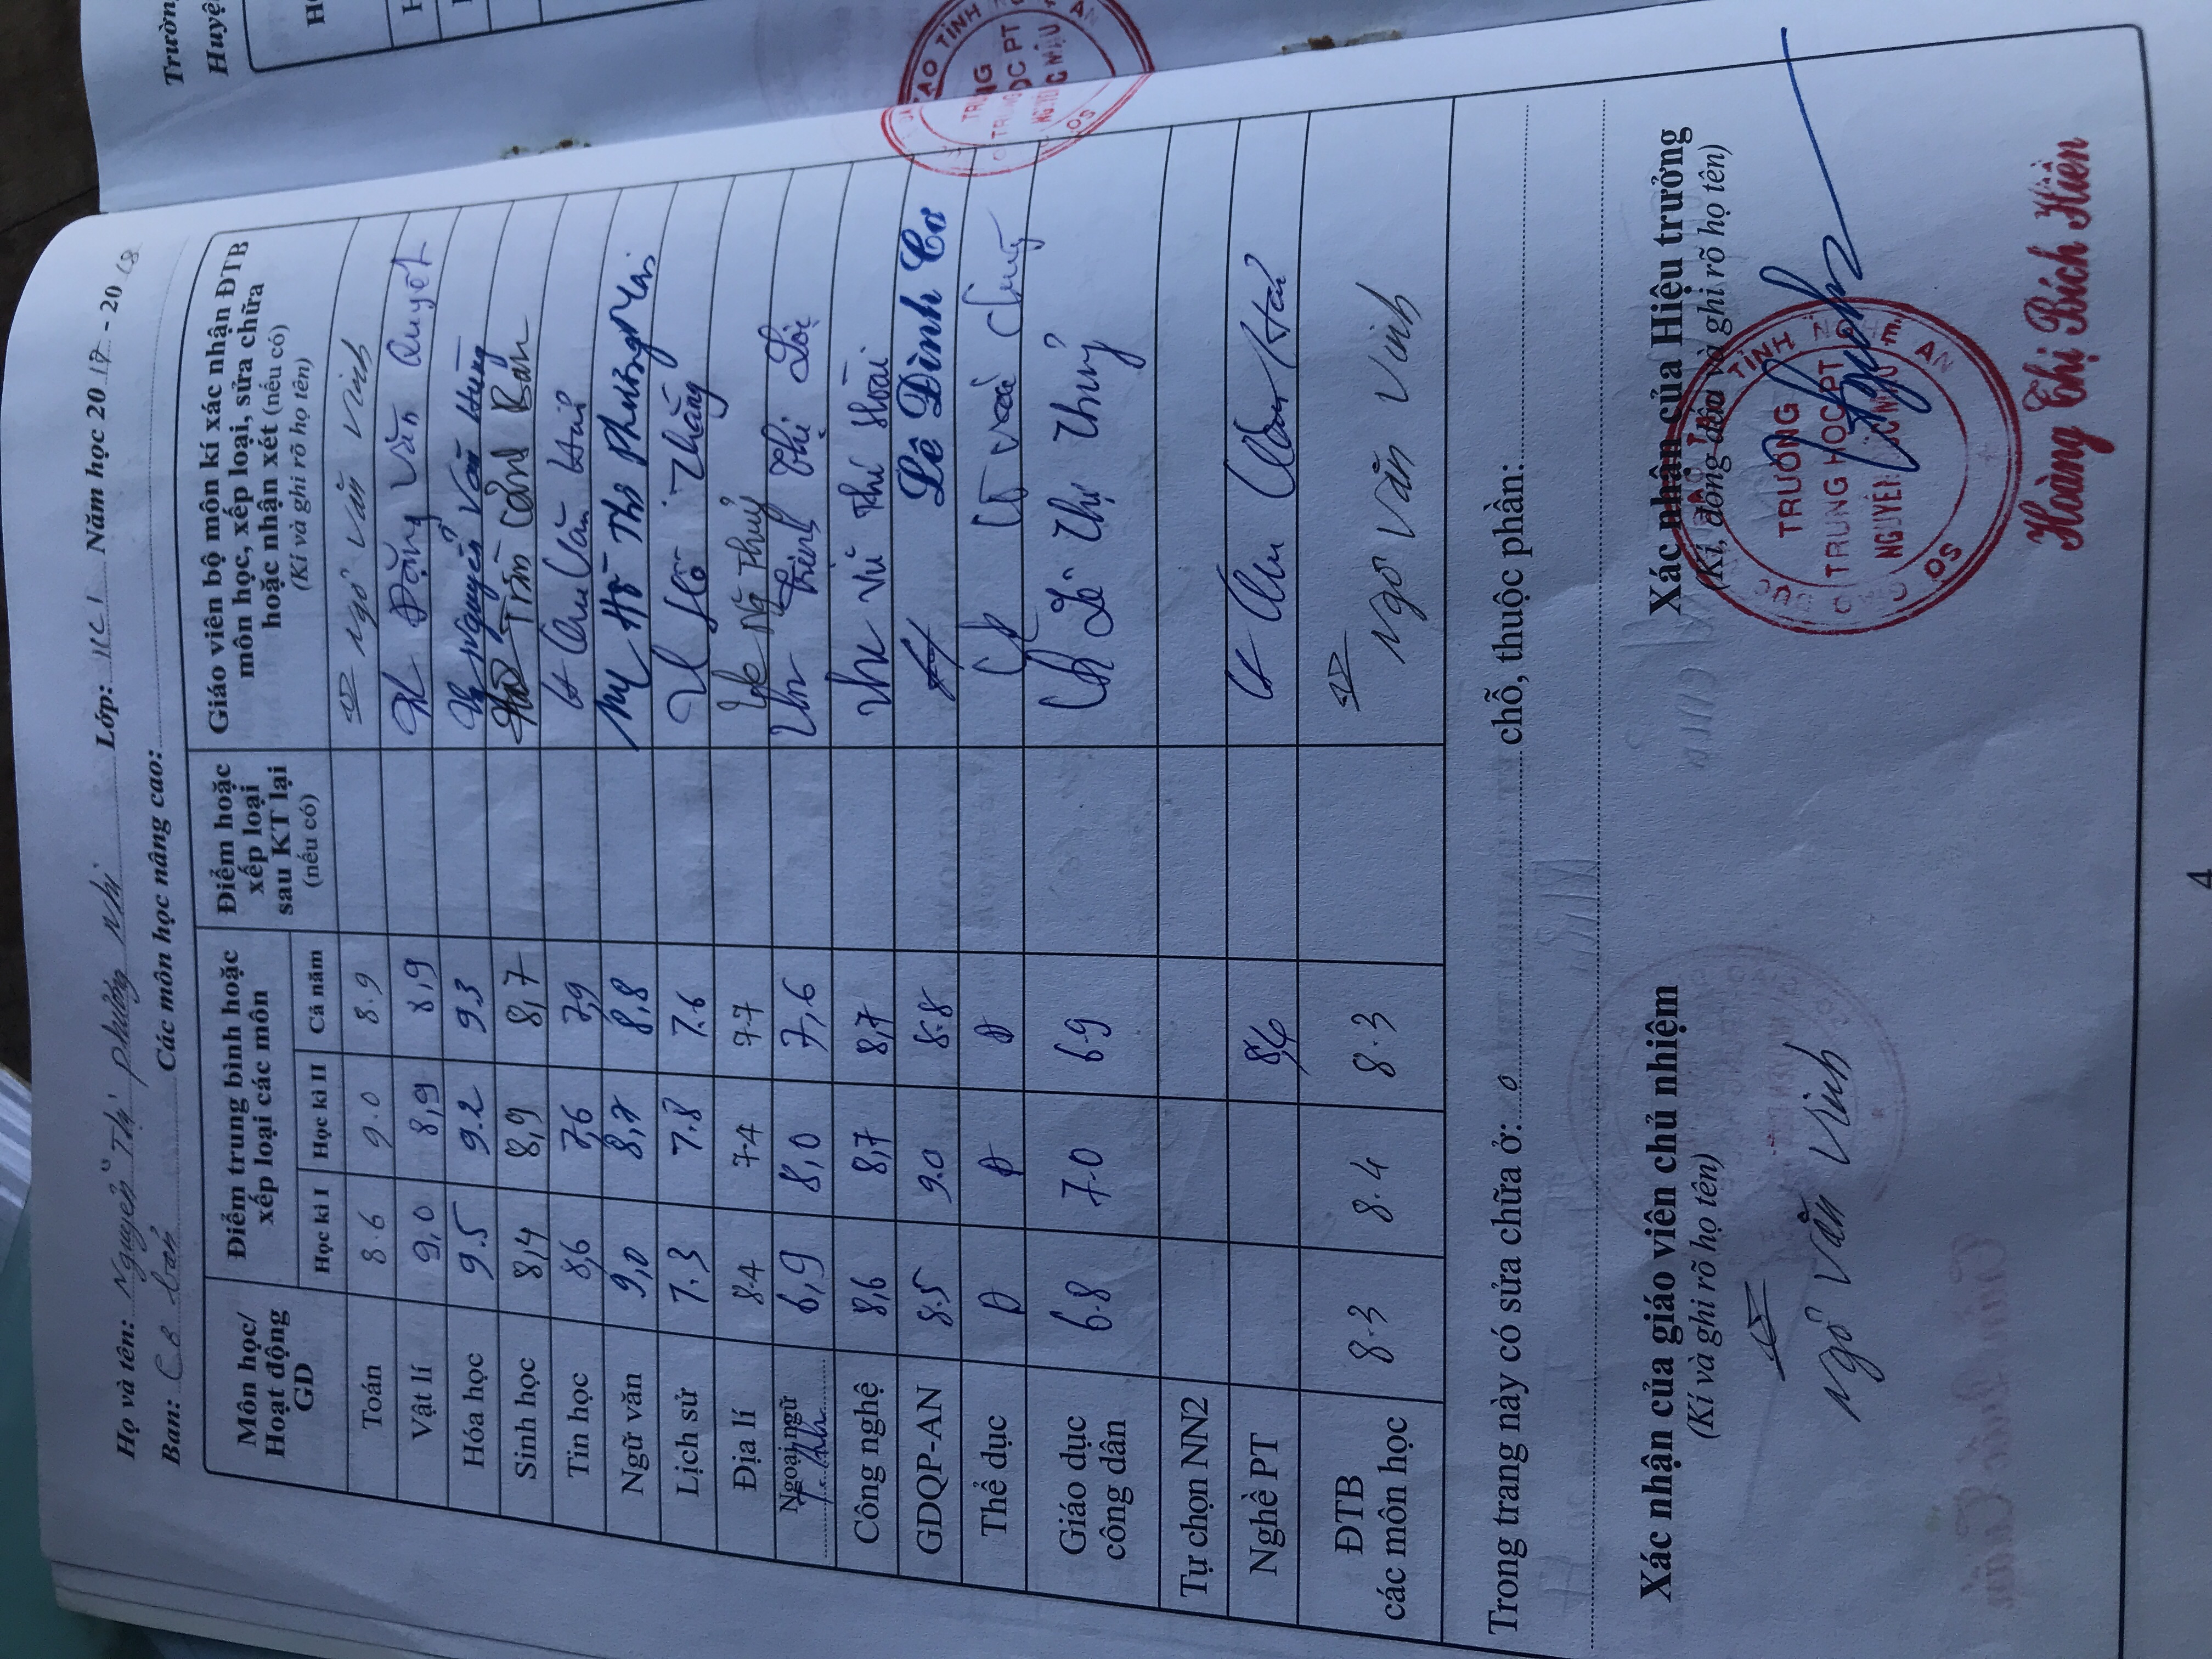 Họ và tên: Nguyễn Thị Phương Nhi Lớp: 11C1 Năm học 2017 - 2018
Ban: Cơ bản Các môn học nâng cao:
Môn học/ Hoạt động GD
Điểm trung bình hoặc xếp loại các môn
Điểm hoặc xếp loại sau KT lại (nếu có)
Giáo viên bộ môn kí xác nhận ĐTB môn học, xếp loại, sửa chữa hoặc nhận xét (nếu có)
(Kí và ghi rõ họ tên)
Học kì I Học kì II Cả năm
Toán 8.6 9.0 8.9 Ngô Văn Vinh
Vật lí 9,0 8,9 8,9 Đặng Văn Quyết
Hóa học 9.5 9.2 9.3 Nguyễn Văn Hùng
Sinh học 8,4 8,9 8,7 Trần Cảnh Ban
Tin học 8,6 7,6 7,9 Chu Văn
Ngữ văn 9,0 8,7 8,8 Hồ Thị Phương Mai
Lịch sử 7.3 7.8 7.6 Hồ Thắng
Địa lí 8.4 7.4 7.7 Ng Thuỷ
Ngoại ngữ
T. Anh 6,9 8,0 7,6 Trịnh Thị Lộc
Công nghệ 8,6 8,7 8,7 Vũ Thị Hoài
GDQP-AN 8.5 9.0 8.8 Lê Đình Cơ
Thể dục Đ Đ Đ
Giáo dục công dân 6.8 7.0 6.9 Lê Thị Thuỷ
Tự chọn NN2
Nghề PT Chu Văn
ĐTB các môn học 8.3 8.4 8.3 Ngô Văn Vinh
Trong trang này có sửa chữa ở: 0 chỗ, thuộc phần:
Xác nhận của giáo viên chủ nhiệm
(Kí và ghi rõ họ tên)
Ngô Văn Vinh
Xác nhận của Hiệu trưởng
(Kí, đóng dấu và ghi rõ họ tên)
SỞ GIÁO DỤC VÀ ĐÀO TẠO TỈNH NGHỆ AN
TRƯỜNG
TRUNG HỌC PT
NGUYỄN ĐỨC MẬU
Hoàng Thị Bích Hiền
4
Trườn
Huyệ